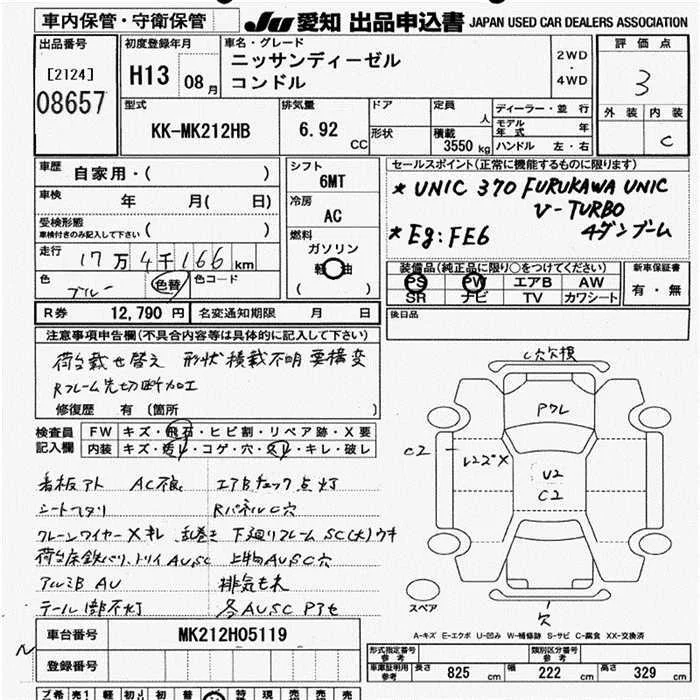 車内保管・守衛保管 JU 愛知 出品申込書 JAPAN USED CAR DEALERS ASSOCIATION
出品番号 初度登録年月 車名・グレード 評価点
[2124] H13 08月 ニッサンディーゼル 2WD
08657 コンドル ・ 4WD 3
型式 排気量 ドア 定員 人 ディーラー・並行 外装 内装
KK-MK212HB 6.92 CC 形状 積載 3550 kg モデル年式 年 C
ハンドル 左・右
車歴 自家用・( ) シフト 6MT セールスポイント(正常に機能するものに限ります)
車検 年 月( 日) 冷房 AC * UNIC 370 FURUKAWA UNIC
受検形態 車検付きのみ記入して下さい ( ) 燃料 V-TURBO
走行 17万4千166 km ガソリン * Eg:FE6 4ダンブーム
色 ブルー 色替 色コード 軽油 ( )
装備品(純正品に限り○をつけてください) 新車保証書
PS PW エアB AW 有・無
SR ナビ TV カワシート
R券 12,790円 名変通知期限 月 日 後日品
注意事項申告欄(不具合内容等は具体的に記入して下さい)
荷台載せ替え 形状積載不明 要構変
Rフレーム先切断加工
修復歴 有 (箇所 )
検査員記入欄 FW キズ・飛石・ヒビ割・リペア跡・X要
内装 キズ・汚レ・コゲ・穴・スレ・キレ・破レ
看板アト AC不良 エアBチェック点灯
シートヘタリ RパネルC穴
クレーンワイヤーXキレ 乱巻き 下廻リフレームSC(大)ウキ
荷台床鉄バリ、トリイAUSC 上物AUSC穴
アルミB AU 排気もれ
テール1部不灯 各AUSC Pアセ
C穴欠損
Pアレ
C2
レンズX
U2
C2
欠
スペア
A-キズ E-エクボ U-凹み W-補修跡 S-サビ C-腐食 XX-交換済
車台番号 MK212H05119
登録番号
型式指定番号 参考 類別区分番号 参考
車庫証明用 参考 長さ 825 cm 幅 222 cm 高さ 329 cm